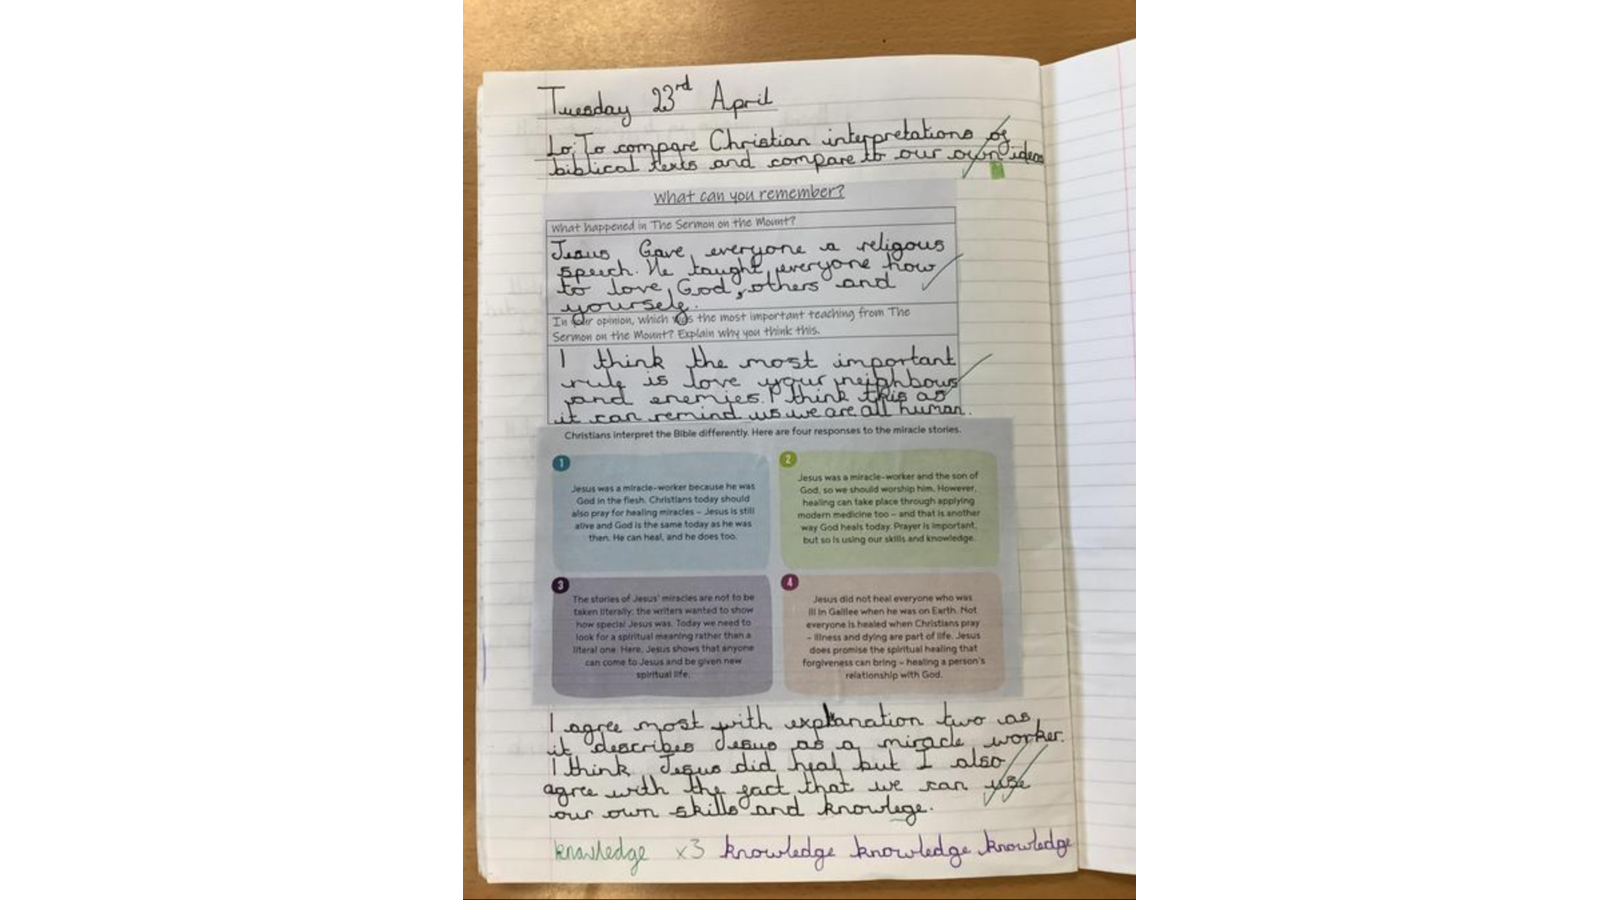 Tuesday 23rd April
Lo: To compare Christian interpretations of
biblical texts and compare to our own ideas
What can you remember?
What happened in The Sermon on the Mount?
Jesus Gave everyone a religous
speech. He taught everyone how
to love, God, others and
yourself.
In your opinion, which was the most important teaching from The
Sermon on the Mount? Explain why you think this.
I think the most important
rule is love your neighbours
and enemies. I think this as
it can remind us we are all human.
Christians interpret the Bible differently. Here are four responses to the miracle stories.
1
Jesus was a miracle-worker because he was
God in the flesh. Christians today should
also pray for healing miracles – Jesus is still
alive and God is the same today as he was
then. He can heal, and he does too.
2
Jesus was a miracle-worker and the son of
God, so we should worship him. However,
healing can take place through applying
modern medicine too – and that is another
way God heals today. Prayer is important,
but so is using our skills and knowledge.
3
The stories of Jesus' miracles are not to be
taken literally: the writers wanted to show
how special Jesus was. Today we need to
look for a spiritual meaning rather than a
literal one. Here, Jesus shows that anyone
can come to Jesus and be given new
spiritual life.
4
Jesus did not heal everyone who was
ill in Galilee when he was on Earth. Not
everyone is healed when Christians pray
– illness and dying are part of life. Jesus
does promise the spiritual healing that
forgiveness can bring – healing a person's
relationship with God.
I agree most with explanation two as,
it describes Jesus as a miracle worker.
I think Jesus did heal but I also
agree with the fact that we can use
our own skills and knowlege.
knowledge x3 knowledge knowledge knowledge